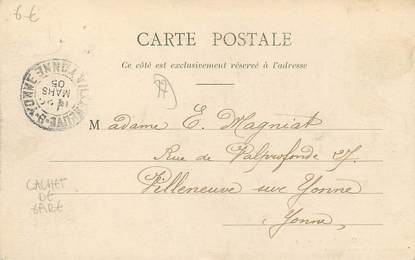 6€
CARTE POSTALE
Ce côté est exclusivement réservé à l'adresse
VILLENEUVE-S-YONNE YONNE
MARS
05
Madame E. Magniat
Rue de Valprofonde 27.
Villeneuve sur Yonne
Yonne
CACHET
DE
GARE